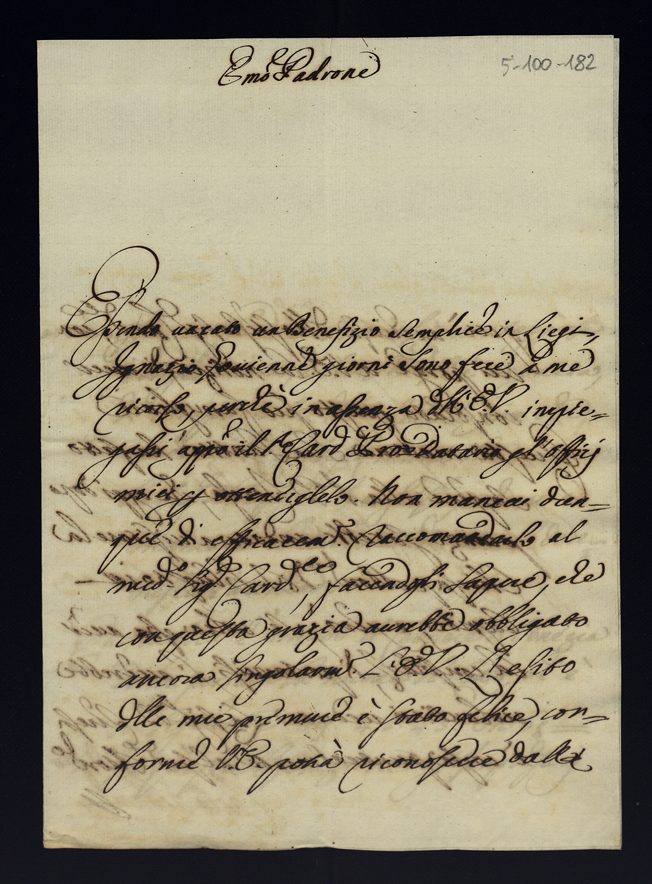 Emo Padrone
5-100-182
Essendo vacato un Benefizio semplice in Liegi,
Ignazio giorni sono fece à me
ricorso, perche in assenza dell'E.V. impie-
gassi appo il Sr. Card. Prodatario gl'offizj
miei p ottenerglielo. Non mancai dun-
que di efficacemte. raccomandarlo al
medo. Sigr. Cardle, facendogli sapere, che
con questa grazia avrebbe obbligato
ancora singolarmte. L'E.V. L'esito
delle mie premure è stato felice, con-
forme V.E. potrà riconoscere dalla